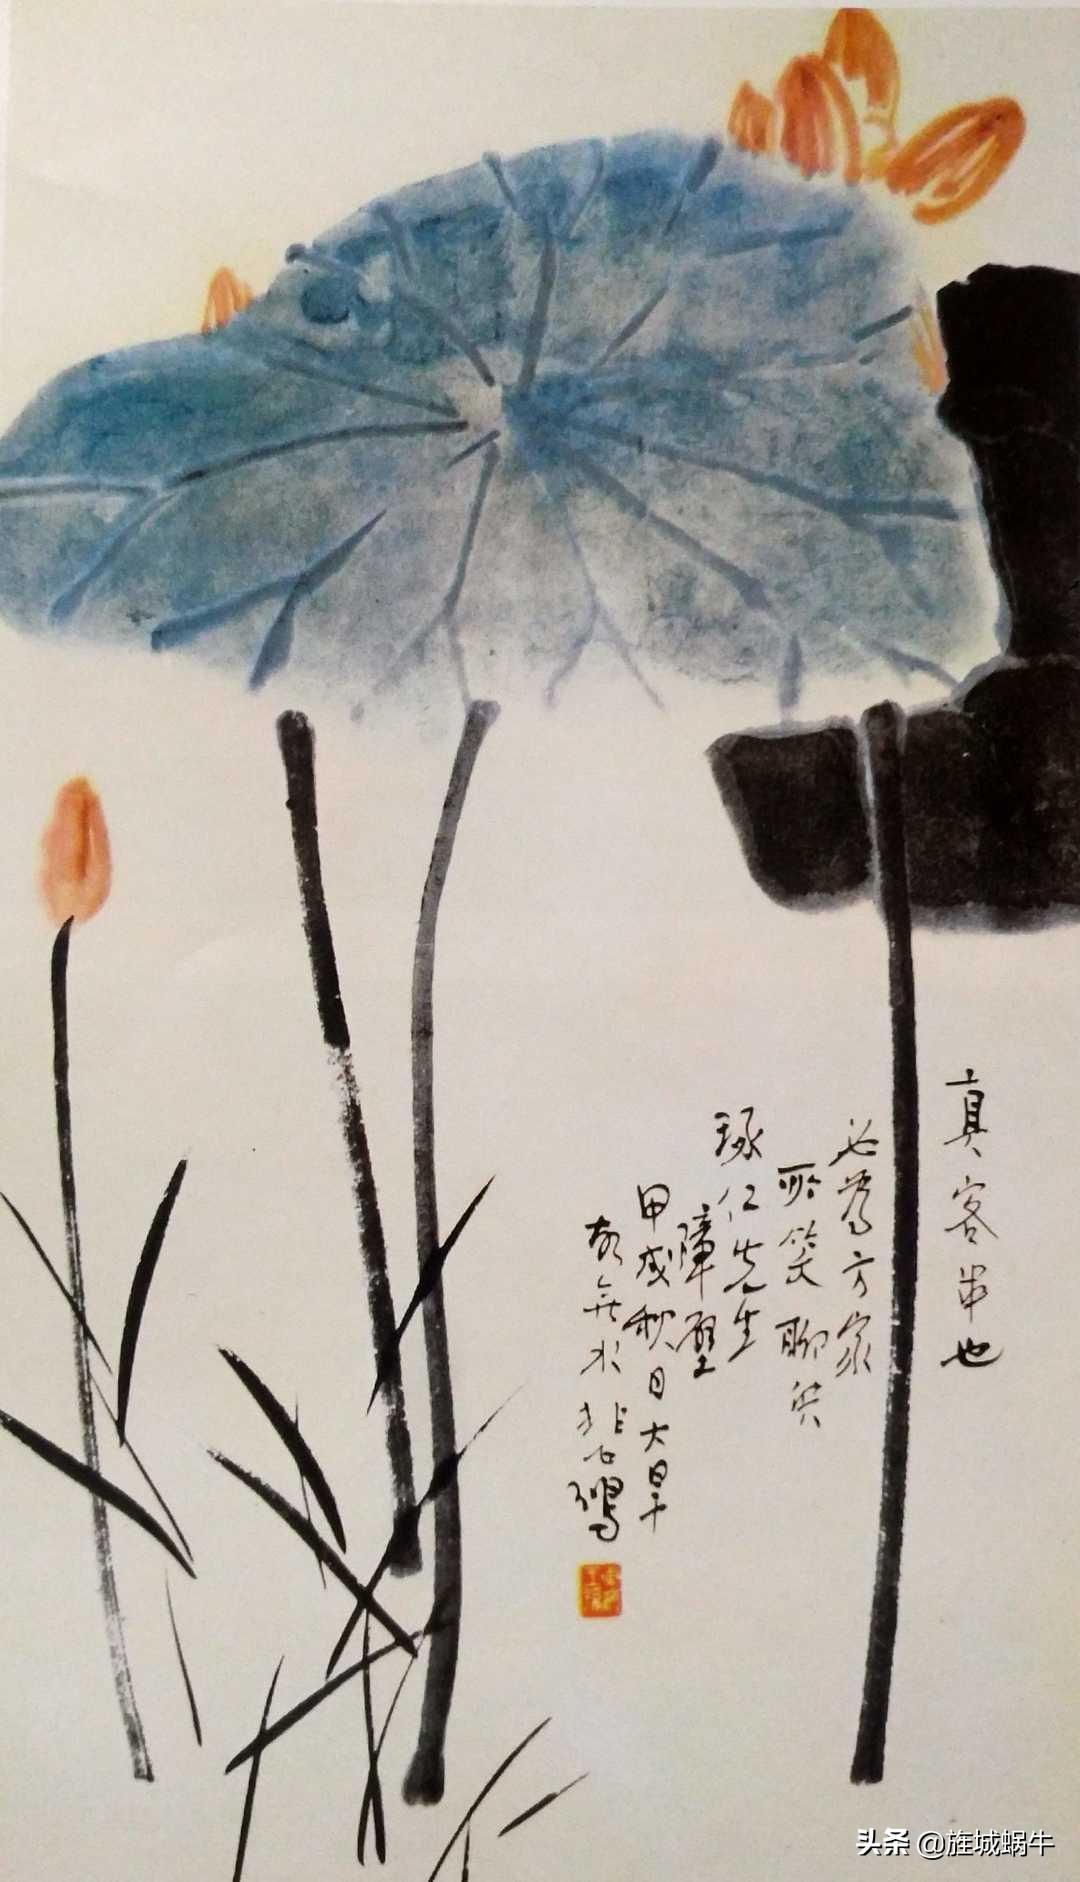 真客串也
必為方家
所笑聊供
琢仁先生
障壁
甲戌秋日大旱
故無水悲鴻
头条 @旌城蜗牛